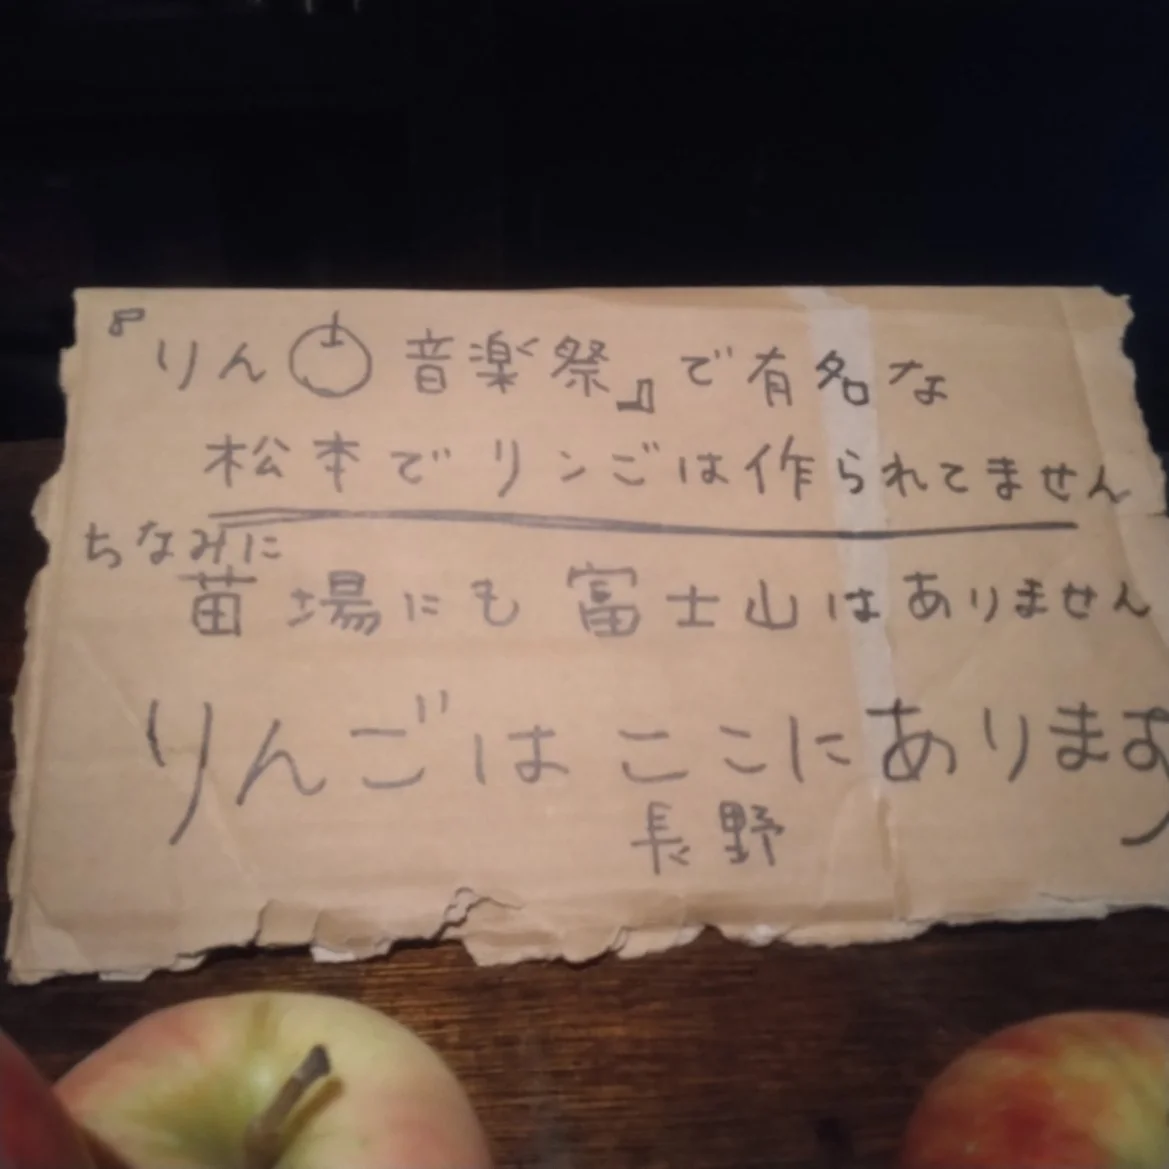 『りん🍎音楽祭』で有名な
松本でリンごは作られてません
ちなみに
苗場にも富士山はありません
りんごはここにあります
長野